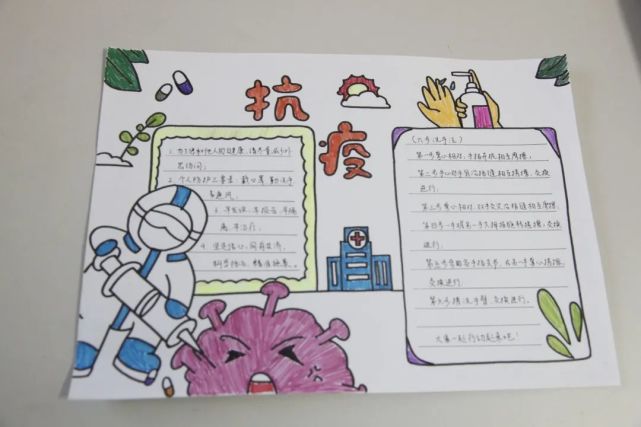 抗
疫
1. 为了您和他人的健康,请尽量减少外
出访问;
2. 个人防护三要素:戴口罩 勤洗手
常通风。
3. 早发现、早报告、早隔
离、早治疗。
4. 坚定信心、同舟共济、
科学防治、精准施策。
(六步洗手法)
第一步掌心相对,手指并拢相互摩擦;
第二步手心对手背沿指缝相互揉搓,交换
进行。
第三步掌心相对,双手交叉沿指缝相互摩擦。
第四步一手握另一手大拇指旋转揉搓,交换
进行。
第五步弯曲各手指关节,在另一手掌心揉搓,
交换进行。
第六步搓洗手臂,交换进行。
大家一起行动起来吧!